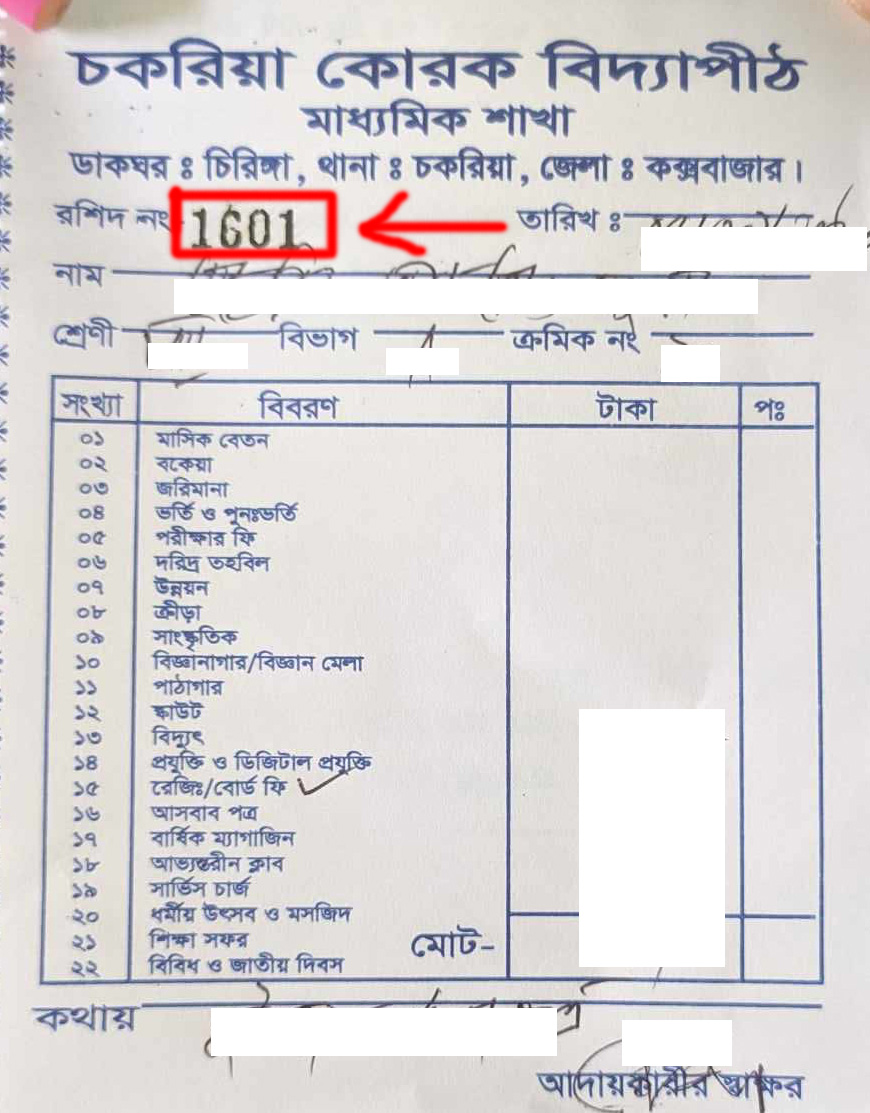 চকরিয়া কোরক বিদ্যাপীঠ
মাধ্যমিক শাখা
ডাকঘর ঃ চিরিঙ্গা, থানা ঃ চকরিয়া, জেলা ঃ কক্সবাজার।
রশিদ নং 1601 তারিখ ঃ
নাম
শ্রেণী বিভাগ ক্রমিক নং
সংখ্যা বিবরণ টাকা পঃ
০১ মাসিক বেতন
০২ বকেয়া
০৩ জরিমানা
০৪ ভর্তি ও পুনঃভর্তি
০৫ পরীক্ষার ফি
০৬ দরিদ্র তহবিল
০৭ উন্নয়ন
০৮ ক্রীড়া
০৯ সাংস্কৃতিক
১০ বিজ্ঞানাগার/বিজ্ঞান মেলা
১১ পাঠাগার
১২ স্কাউট
১৩ বিদ্যুৎ
১৪ প্রযুক্তি ও ডিজিটাল প্রযুক্তি
১৫ রেজিঃ/বোর্ড ফি ✓
১৬ আসবাব পত্র
১৭ বার্ষিক ম্যাগাজিন
১৮ আভ্যন্তরীন ক্লাব
১৯ সার্ভিস চার্জ
২০ ধর্মীয় উৎসব ও মসজিদ
২১ শিক্ষা সফর মোট-
২২ বিবিধ ও জাতীয় দিবস
কথায়
আদায়কারীর স্বাক্ষর